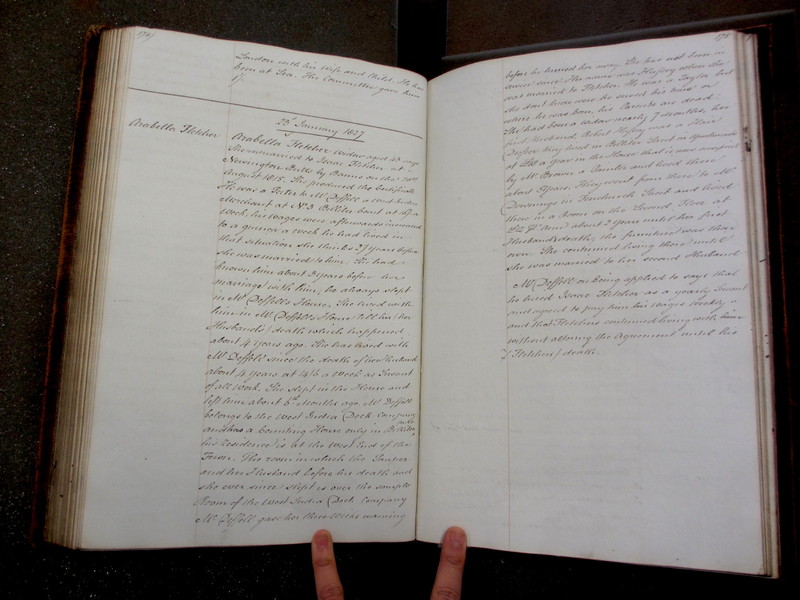 174
London with his Wife and Child. He has
been at Sea. The Committee gave him
23d January 1827
Arabella Fletcher
Arabella Fletcher Widow aged 43 says
She was married to Isaac Fletcher at
Newington Butts by Banns on the
August 1815. She produced the Certificate
He was a Porter to Mr Deffell a West India
Merchant at No 3 Billiter Court at 18/ a
Week, his Wages were afterwards increased
to a guinea a Week he had lived in
that situation she thinks 27 Years before
she was married to him. She had
known him about 3 Years before her
marriage with him, he always slept
in Mr Deffell's House. She lived with
him in Mr Deffell's House till his (her
Husband's) death which happened
about 4 Years ago. She has lived with
Mr Deffell since the death of her Husband
about 4 Years at 4/6 a Week as Servant
of all Work. She slept in the House and
left him about 6 Months ago. Mr Deffell
belongs to the West India Dock Company
and has a Counting House only in Billiter
his Residence is at the West End of the
Town. The room in which the Pauper
and her Husband before his death and
she ever since slept is over the sample
Room of the West India Dock Company
Mr Deffell gave her three Weeks warning
175
before he turned her away. She has not been in
Service since. Her name was Hussey when she
was married to Fletcher. He was a Taylor but
she don't know where he served his time or
where he was born, his Parents are dead.
She had been a Widow nearly 7 Months, her
first Husband Robert Hussey was a
they lived in Billiter Street in Apartments
at a Year in the House that is now occupied
by Mr Brown a Painter and lived there
about 3 Years. They went from there to Mr
Downings in Fenchurch Street and lived
there in a Room on the Second Floor at
about 2 Years until her first
Husband's death, the furniture was their
own. She continued living there until
she was married to her second Husband.
Mr Deffell on being applied to says that
he hired Isaac Fletcher as a yearly Servant
and agreed to pay him his Wages Weekly
and that Fletcher continued living with him
without altering the Agreement until his
(Fletcher's) death.